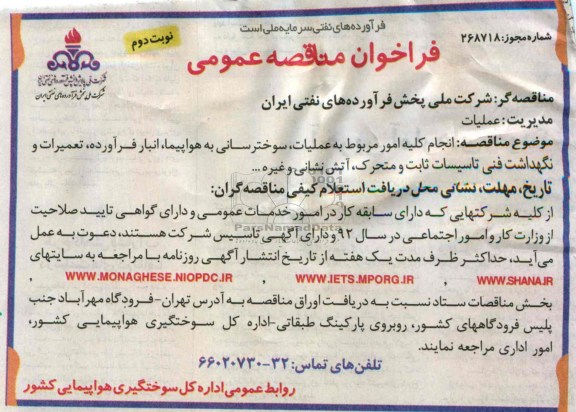 فرآورده‌های نفتی سرمایه ملی است
شماره مجوز: ۲۶۸۷۱۸
نوبت دوم
فراخوان مناقصه عمومی
شرکت ملی پخش فرآورده‌های نفتی ایران
مناقصه‌گر: شرکت ملی پخش فرآورده‌های نفتی ایران
مدیریت: عملیات
موضوع مناقصه: انجام کلیه امور مربوط به عملیات، سوخترسانی به هواپیما، انبار فرآورده، تعمیرات و
نگهداشت فنی تاسیسات ثابت و متحرک، آتش نشانی و غیره ...
تاریخ، مهلت، نشانی محل دریافت استعلام کیفی مناقصه‌گران:
از کلیه شرکتهایی که دارای سابقه کار در امور خدمات عمومی و دارای گواهی تایید صلاحیت
از وزارت کار و امور اجتماعی در سال ۹۲ و دارای آگهی تاسیس شرکت هستند، دعوت به عمل
می‌آید، حداکثر ظرف مدت یک هفته از تاریخ انتشار آگهی روزنامه با مراجعه به سایتهای
WWW.SHANA.IR , WWW.IETS.MPORG.IR , WWW.MONAGHESE.NIOPDC.IR
بخش مناقصات ستاد نسبت به دریافت اوراق مناقصه به آدرس تهران-فرودگاه مهرآباد جنب
پلیس فرودگاههای کشور، روبروی پارکینگ طبقاتی-اداره کل سوختگیری هواپیمایی کشور،
امور اداری مراجعه نمایند.
تلفن‌های تماس: ۳۲-۶۶۰۲۰۷۳۰
روابط عمومی اداره کل سوختگیری هواپیمایی کشور
ParsNamadData